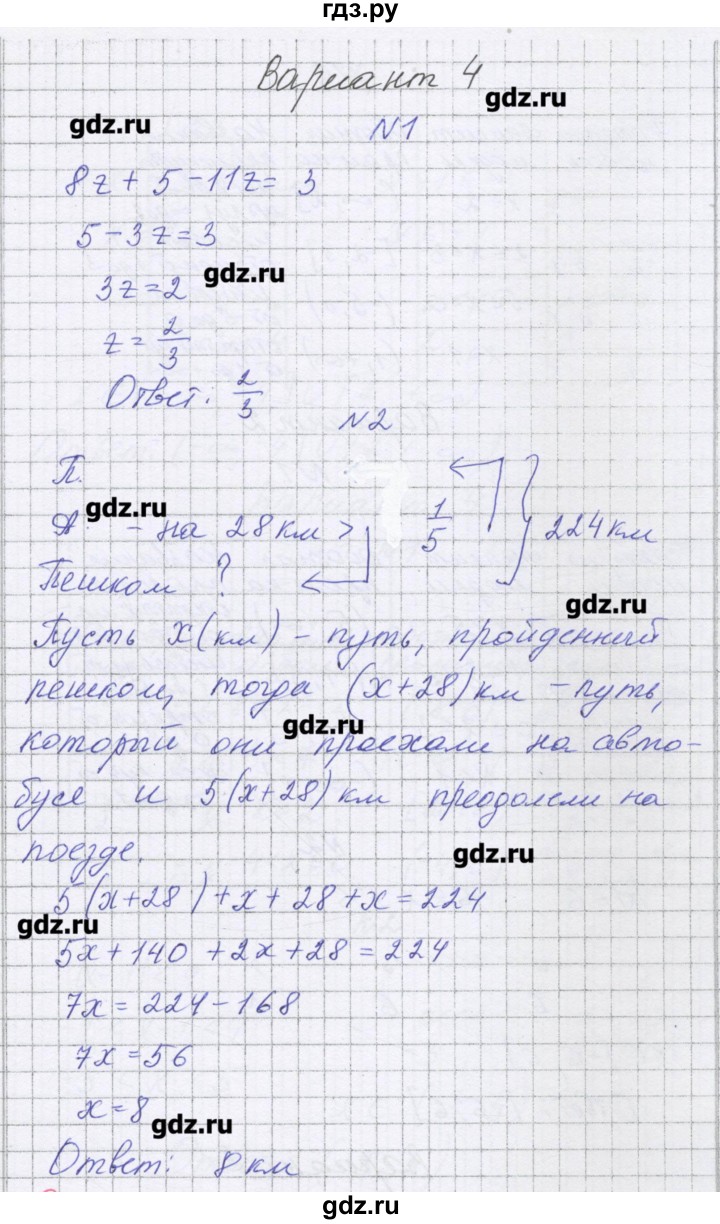 гдз.ру
Вариант 4
gdz.ru
gdz.ru
N1
8z + 5 - 11z = 3
5 - 3z = 3
gdz.ru
3z = 2
z = 2/3
Ответ: 2/3
N2
П.
gdz.ru
А - на 28 км >
1/5
224 км
Пешком ?
gdz.ru
Пусть x (км) - путь, пройденный
пешком, тогда (x+28) км - путь,
gdz.ru
который они проехали на авто-
бусе и 5(x+28) км преодолели на
поезде.
gdz.ru
5(x+28) + x + 28 + x = 224
gdz.ru
5x + 140 + 2x + 28 = 224
7x = 224 - 168
7x = 56
x = 8
gdz.ru
Ответ: 8 км
gdz.ru